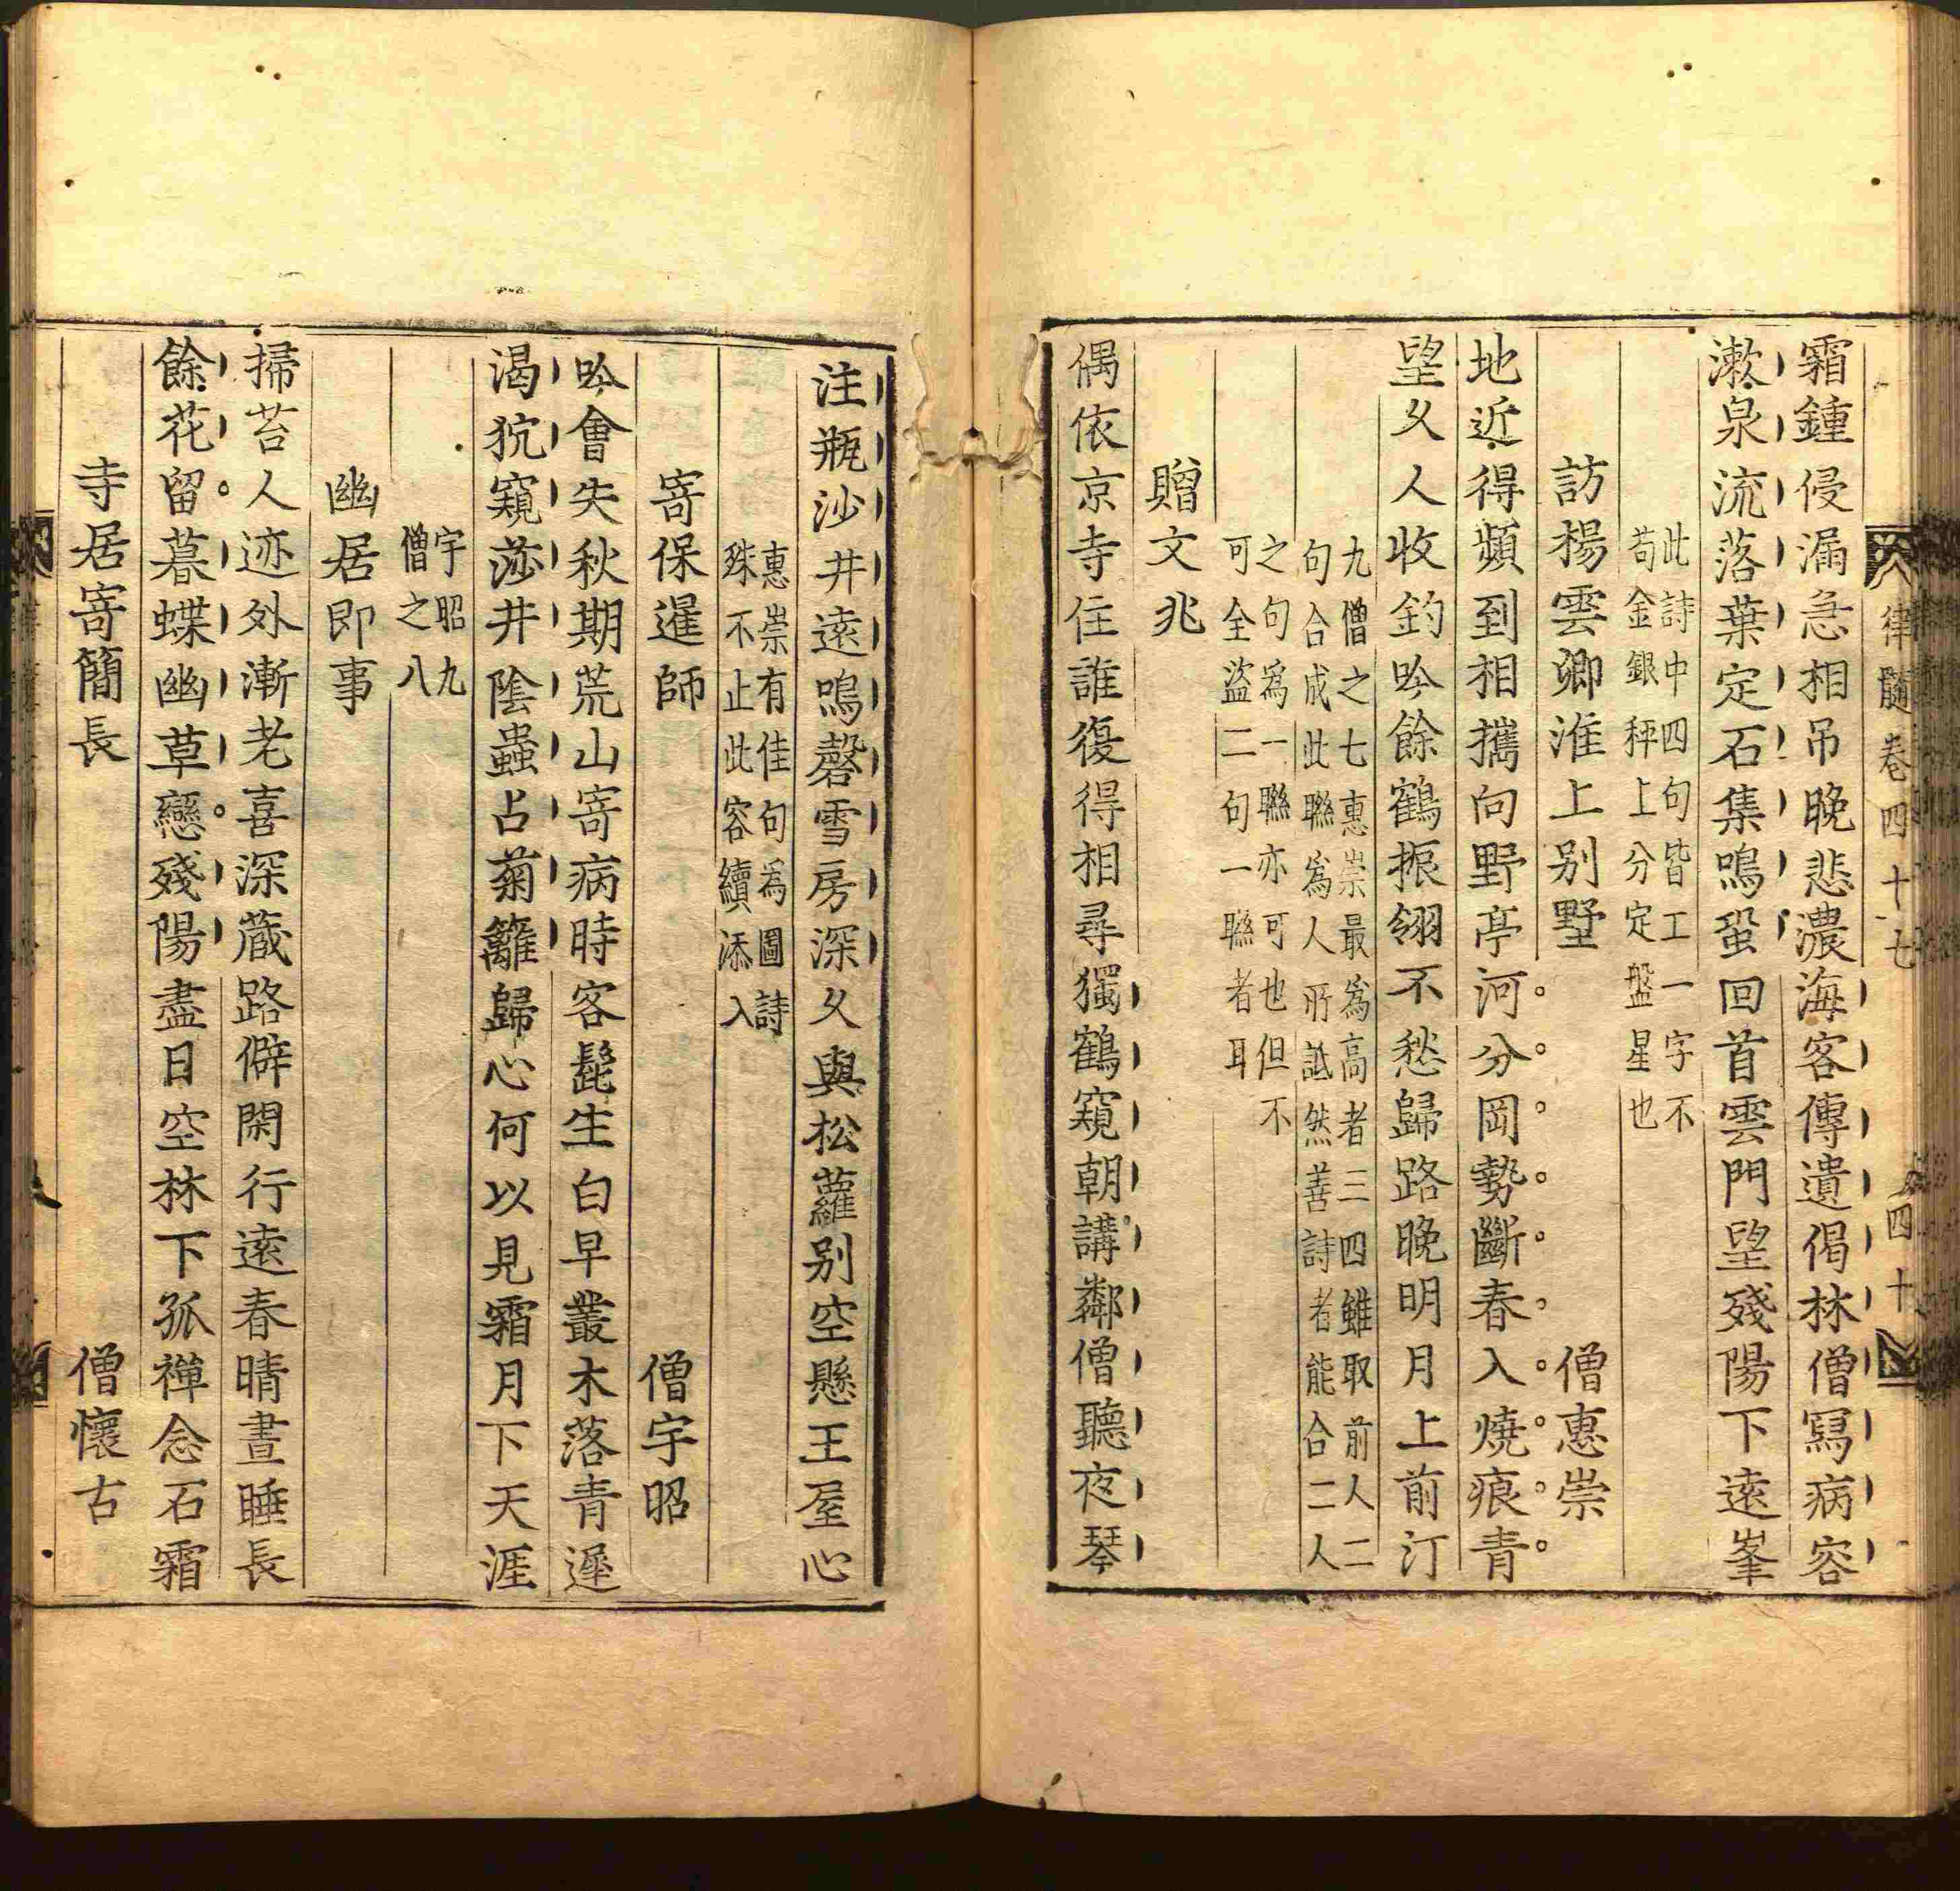 律髓卷四十七
四十
霜鍾侵漏急相吊晚悲濃海客傳遺偈林僧寫病容
漱泉流落葉定石集鳴蛩回首雲門望殘陽下遠峯
此詩中四句皆工一字不
苟金銀秤上分定盤星也
訪楊雲卿淮上别墅
僧惠崇
地近得頻到相攜向野亭河分岡勢斷春入燒痕青
望久人收釣吟餘鶴振翎不愁歸路晚明月上前汀
九僧之七惠崇最爲高者三四雖取前人二
句合成此聯爲人所詆然善詩者能合二人
之句爲一聯亦可也但不
可全盜二句一聯者耳
贈文兆
偶依京寺住誰復得相尋獨鶴窺朝講鄰僧聽夜琴
注瓶沙井遠鳴磬雪房深久與松蘿别空懸王屋心
惠崇有佳句爲圖詩
殊不止此容續添入
寄保暹師
僧宇昭
吟會失秋期荒山寄病時客髭生白早叢木落青遲
渴狖窺莎井陰蟲占菊籬歸心何以見霜月下天涯
宇昭九
僧之八
幽居即事
掃苔人迹外漸老喜深蔵路僻閑行遠春晴晝睡長
餘花留暮蝶幽草戀殘陽盡日空林下孤禪念石霜
寺居寄簡長
僧懷古